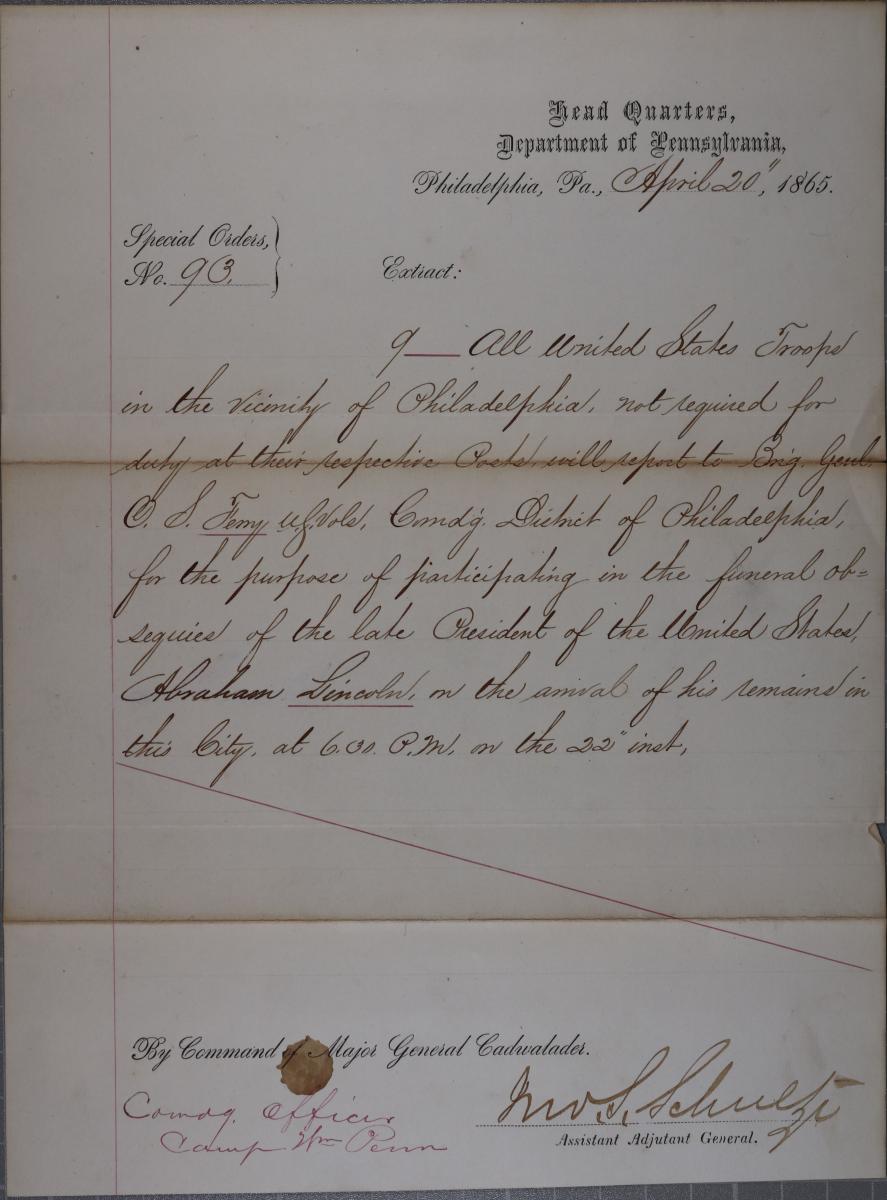 Head Quarters,
Department of Pennsylvania,
Philadelphia, Pa., April 20", 1865.
Special Orders,
No. 93.
Extract:
9— All United States Troops
in the vicinity of Philadelphia, not required for
duty at their respective Posts, will report to Brig. Genl.
O. S. Ferry U.S. Vols, Comdg. District of Philadelphia,
for the purpose of participating in the funeral ob=
sequies of the late President of the United States,
Abraham Lincoln, on the arrival of his remains in
this City, at 6.30. P.M. on the 22" inst,
By Command of Major General Cadwalader.
Jno. S. Schultze
Assistant Adjutant General.
Comdg. Officer
Camp Wm Penn